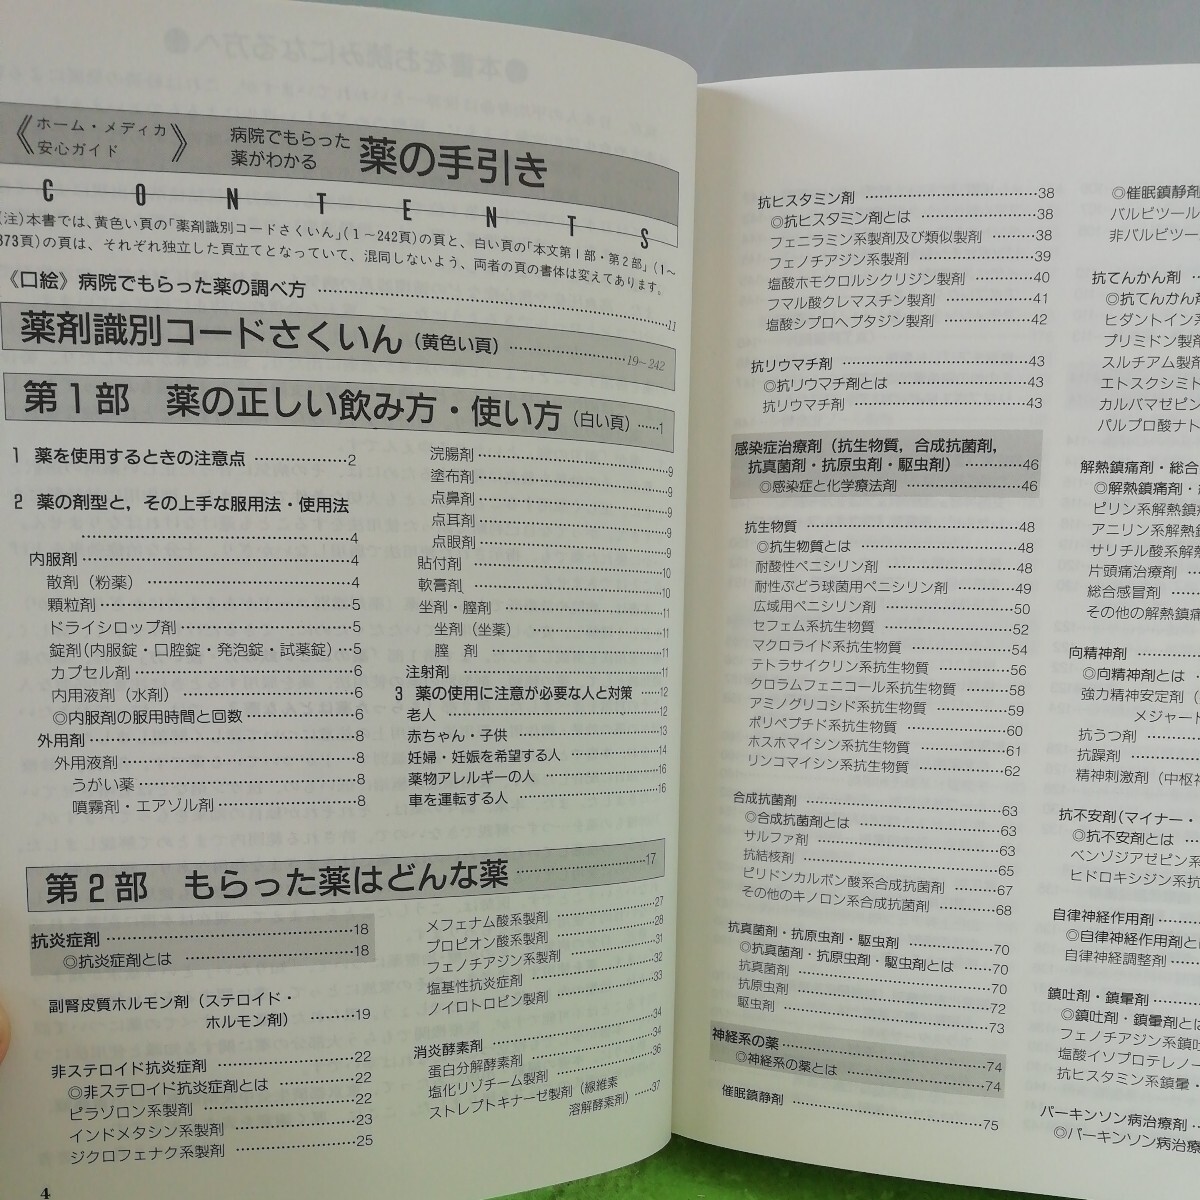 《ホーム・メディカ
安心ガイド》
病院でもらった
薬がわかる
薬の手引き
CONTENTS
(注)本書では、黄色い頁の「薬剤識別コードさくいん」(1～242頁)の頁と、白い頁の「本文第1部・第2部」(1～
373頁)の頁は、それぞれ独立した頁立てとなっていて、混同しないよう、両者の頁の書体は変えてあります。
《口絵》病院でもらった薬の調べ方 …… 11
薬剤識別コードさくいん(黄色い頁) …… 19～242
第1部 薬の正しい飲み方・使い方(白い頁) …… 1
1 薬を使用するときの注意点 …… 2
2 薬の剤型と，その上手な服用法・使用法
…… 4
内服剤 …… 4
散剤（粉薬） …… 4
顆粒剤 …… 5
ドライシロップ剤 …… 5
錠剤(内服錠・口腔錠・発泡錠・試薬錠) … 5
カプセル剤 …… 6
内用液剤（水剤） …… 6
◎内服剤の服用時間と回数 …… 6
外用剤 …… 8
外用液剤 …… 8
うがい薬 …… 8
噴霧剤・エアゾル剤 …… 8
浣腸剤 …… 9
塗布剤 …… 9
点鼻剤 …… 9
点耳剤 …… 9
点眼剤 …… 9
貼付剤 …… 10
軟膏剤 …… 10
坐剤・膣剤 …… 11
坐剤（坐薬） …… 11
膣 剤 …… 11
注射剤 …… 11
3 薬の使用に注意が必要な人と対策 …… 12
老人 …… 12
赤ちゃん・子供 …… 13
妊婦・妊娠を希望する人 …… 14
薬物アレルギーの人 …… 16
車を運転する人 …… 16
第2部 もらった薬はどんな薬 …… 17
抗炎症剤 …… 18
◎抗炎症剤とは …… 18
副腎皮質ホルモン剤（ステロイド・
ホルモン剤） …… 19
非ステロイド抗炎症剤 …… 22
◎非ステロイド抗炎症剤とは …… 22
ピラゾロン系製剤 …… 22
インドメタシン系製剤 …… 23
ジクロフェナク系製剤 …… 25
メフェナム酸系製剤 …… 27
プロピオン酸系製剤 …… 28
フェノチアジン系製剤 …… 31
塩基性抗炎症剤 …… 32
ノイロトロピン製剤 …… 33
消炎酵素剤 …… 34
蛋白分解酵素剤 …… 34
塩化リゾチーム製剤 …… 36
ストレプトキナーゼ製剤（線維素
溶解酵素剤） …… 37
4
抗ヒスタミン剤 …… 38
◎抗ヒスタミン剤とは …… 38
フェニラミン系製剤及び類似製剤 …… 38
フェノチアジン系製剤 …… 39
塩酸ホモクロルシクリジン製剤 …… 40
フマル酸クレマスチン製剤 …… 41
塩酸シプロヘプタジン製剤 …… 42
抗リウマチ剤 …… 43
◎抗リウマチ剤とは …… 43
抗リウマチ剤 …… 43
感染症治療剤（抗生物質，合成抗菌剤，
抗真菌剤・抗原虫剤・駆虫剤） …… 46
◎感染症と化学療法剤 …… 46
抗生物質 …… 48
◎抗生物質とは …… 48
耐酸性ペニシリン剤 …… 48
耐性ぶどう球菌用ペニシリン剤 …… 49
広域用ペニシリン剤 …… 50
セフェム系抗生物質 …… 52
マクロライド系抗生物質 …… 54
テトラサイクリン系抗生物質 …… 56
クロラムフェニコール系抗生物質 …… 58
アミノグリコシド系抗生物質 …… 59
ポリペプチド系抗生物質 …… 60
ホスホマイシン系抗生物質 …… 61
リンコマイシン系抗生物質 …… 62
合成抗菌剤 …… 63
◎合成抗菌剤とは …… 63
サルファ剤 …… 63
抗結核剤 …… 65
ピリドンカルボン酸系合成抗菌剤 …… 67
その他のキノロン系合成抗菌剤 …… 68
抗真菌剤・抗原虫剤・駆虫剤 …… 70
◎抗真菌剤・抗原虫剤・駆虫剤とは …… 70
抗真菌剤 …… 70
抗原虫剤 …… 72
駆虫剤 …… 73
神経系の薬 …… 74
◎神経系の薬とは …… 74
催眠鎮静剤 …… 75
◎催眠鎮静剤
バルビツール
非バルビツー
抗てんかん剤 …
◎抗てんかん剤
ヒダントイン系
プリミドン製剤
スルチアム製剤
エトスクシミト
カルバマゼピン
バルプロ酸ナト
解熱鎮痛剤・総合
◎解熱鎮痛剤・
ピリン系解熱鎮
アニリン系解熱
サリチル酸系解熱
片頭痛治療剤 …
総合感冒剤 …
その他の解熱鎮痛
向精神剤 …
◎向精神剤とは …
強力精神安定剤（
メジャート
抗うつ剤 …
抗躁剤 …
精神刺激剤（中枢神
抗不安剤（マイナー・
◎抗不安剤とは …
ベンゾジアゼピン系
ヒドロキシジン系抗
自律神経作用剤 …
◎自律神経作用剤とに
自律神経調整剤 …
鎮吐剤・鎮暈剤 …
◎鎮吐剤・鎮暈剤とは
フェノチアジン系鎮吐
塩酸イソプロテレノー
抗ヒスタミン系鎮暈・
パーキンソン病治療剤 …
◎パーキンソン病治療